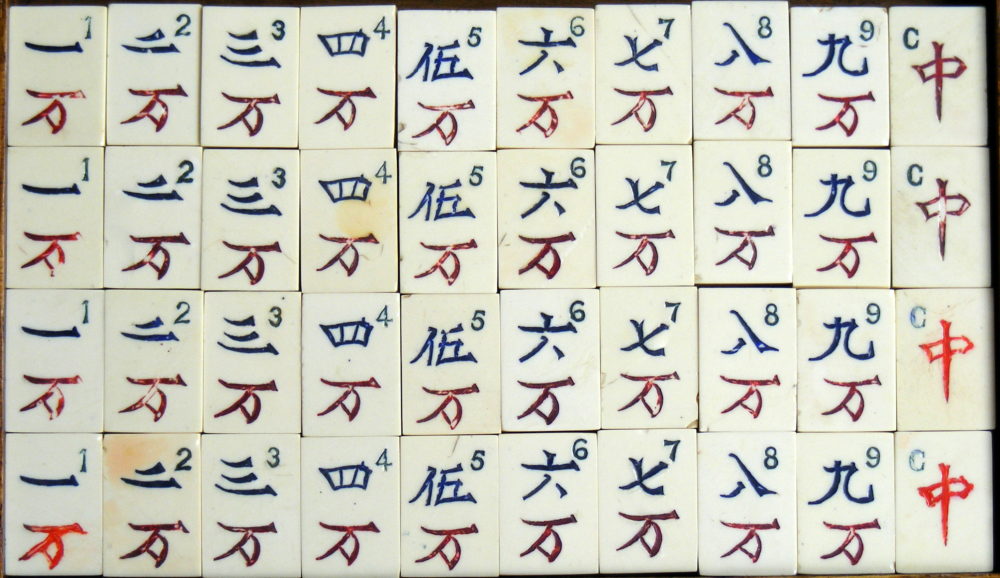 1 2 3 4 5 6 7 8 9 C
一 二 三 四 伍 六 七 八 九 中
万 万 万 万 万 万 万 万 万
1 2 3 4 5 6 7 8 9 C
一 二 三 四 伍 六 七 八 九 中
万 万 万 万 万 万 万 万 万
1 2 3 4 5 6 7 8 9 C
一 二 三 四 伍 六 七 八 九 中
万 万 万 万 万 万 万 万 万
1 2 3 4 5 6 7 8 9 C
一 二 三 四 伍 六 七 八 九 中
万 万 万 万 万 万 万 万 万